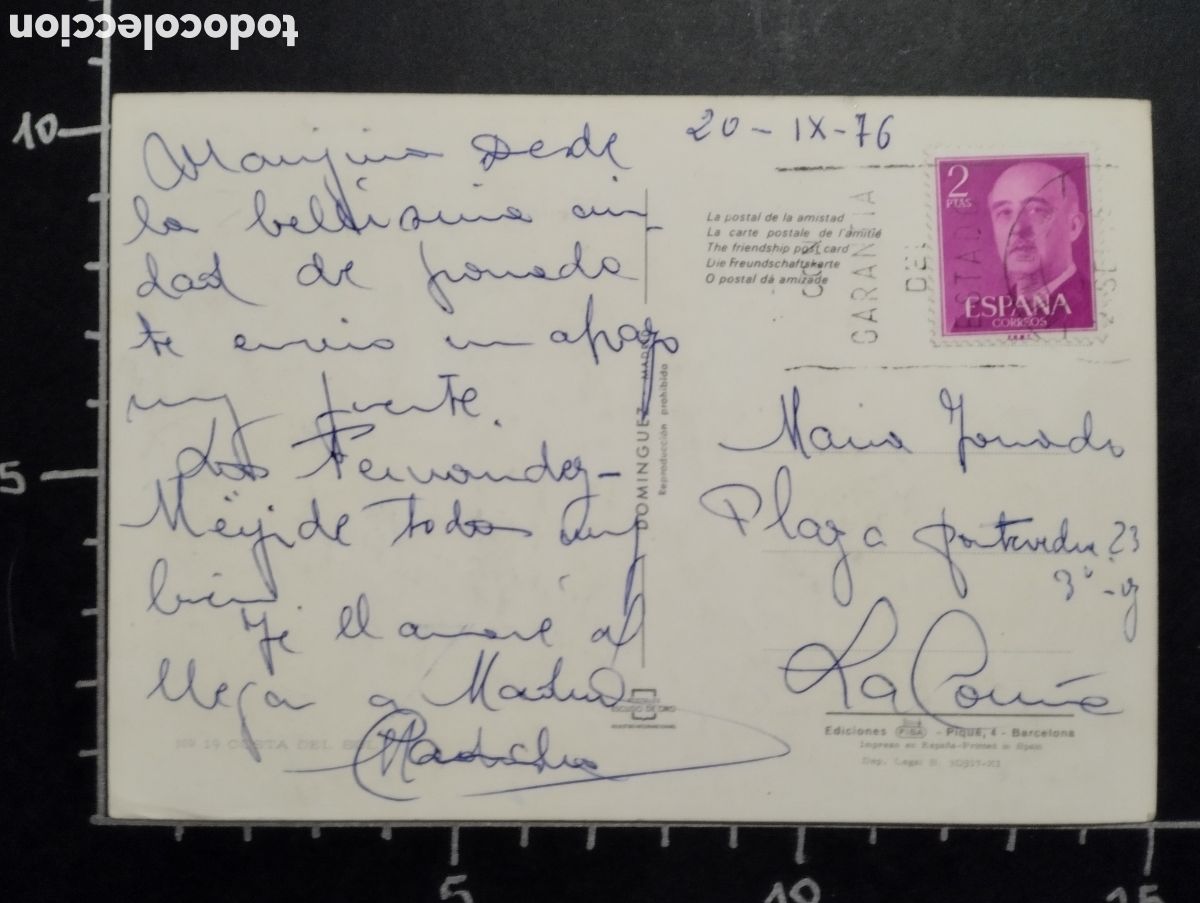 todocoleccion
10
5
20-IX-76
Desde
la bellisima ciu-
dad de granada
te envio un abrazo
muy fuerte.
Los Fernandez-
Meijide todos muy
bien
Te llamaré al
llegar a Madrid
La postal de la amistad
La carte postale de l'amitié
The friendship post card
Die Freundschaftskarte
O postal da amizade
CON
GARANTIA
DEL
ESTADO
2
PTAS
ESPAÑA
CORREOS
F.N.M.T.
DOMINGUEZ - MADRID
Reproducción prohibida
Maria
Plaza pontevedra 23
3º-iz
La Coruña
ESCUDO DE ORO
Nº 19 COSTA DEL SOL
Ediciones FISA - Piqué, 4 - Barcelona
Impreso en España-Printed in Spain
Dep. Legal B.
5
10
15